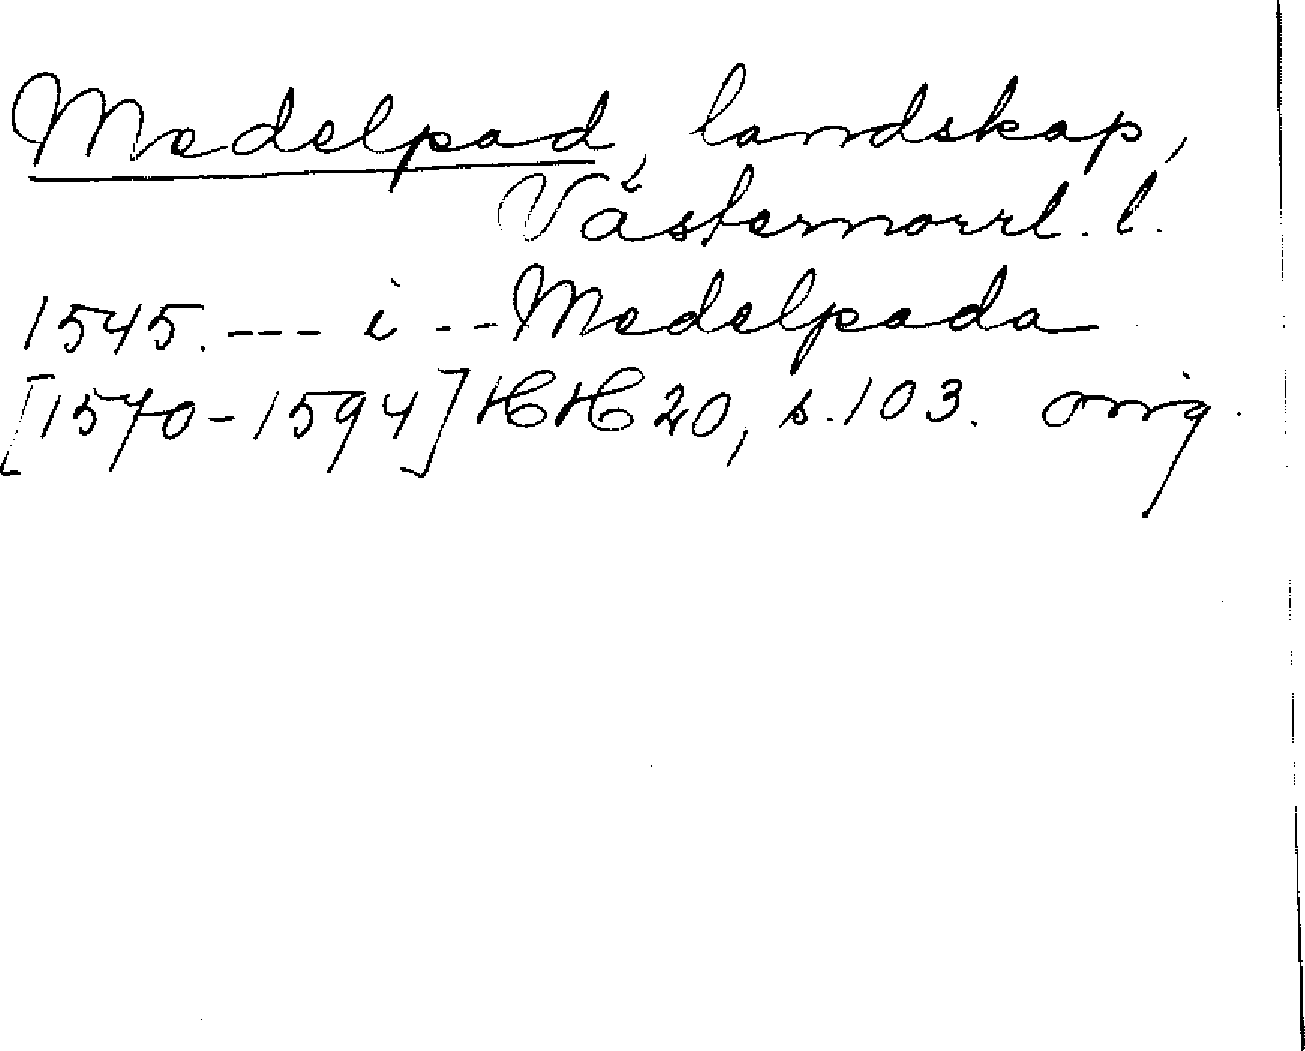 Medelpad, landskap,
Västernorrl. l.
1545. --- i -- Medelpada
[1570-1594] HH 20, s. 103. orig.